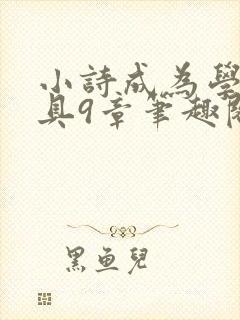 小詩成為學
具9章筆趣閣
黑魚兒